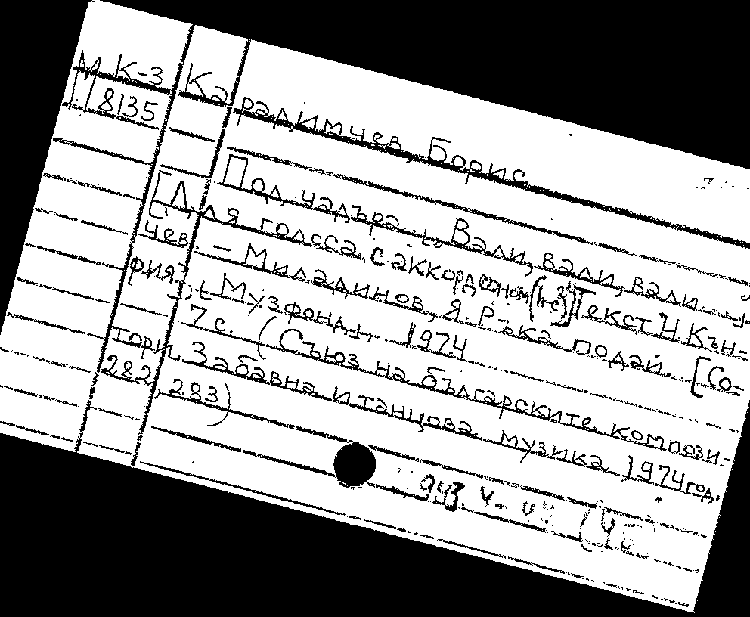 М К-3 Карадимчев, Борис
8135
Под чадъра. „Вали, вали, вали...“
[Для голоса с аккордеоном] Текст Н. Кън-
чев. – Миладинов, Я. Ръка подай. [Со-
рия], Музфонд, 1974
7 с. (Съюз на българските компози-
тори. Забавна и танцова музика. 1974 год.
282, 283)
943